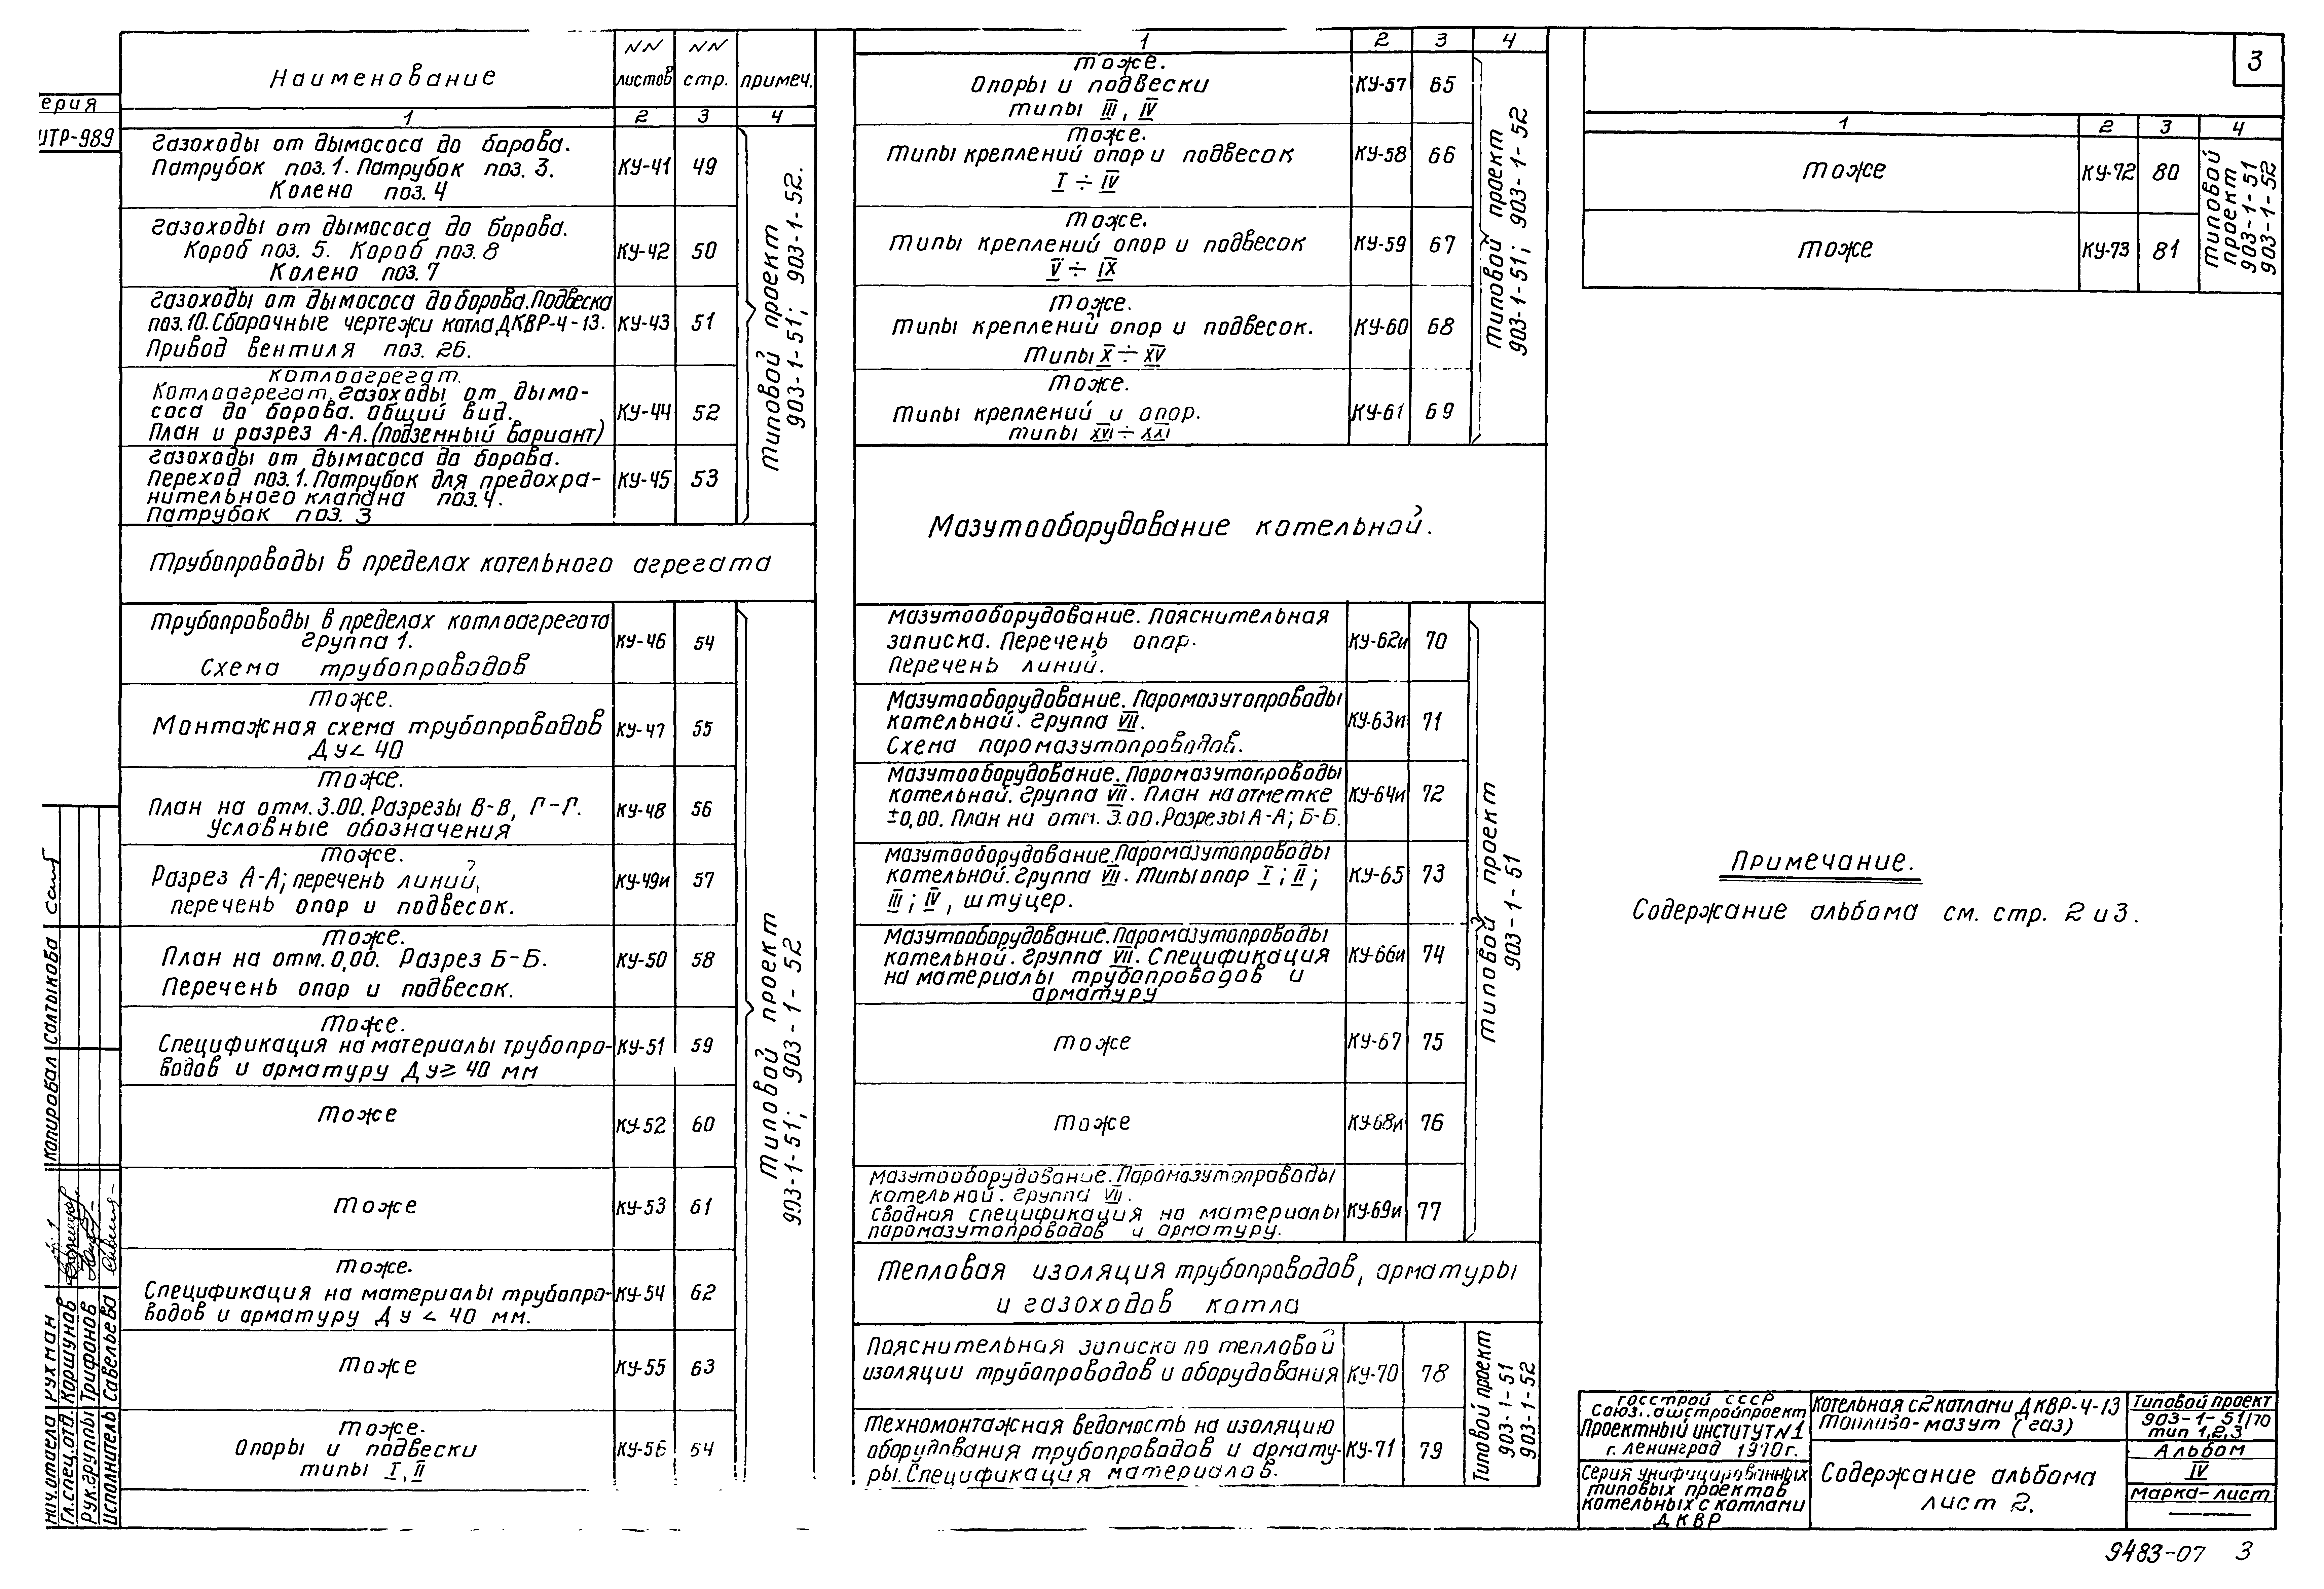 3
ерия
ИТР-989
Наименование
NN листов
NN стр.
примеч.
1 2 3 4
Газоходы от дымососа до борова.
Патрубок поз.1. Патрубок поз. 3. КУ-41 49
Колено поз.4
Газоходы от дымососа до борова.
Короб поз. 5. Короб поз. 8 КУ-42 50
Колено поз. 7
Газоходы от дымососа до борова. Подвеска
поз.10. Сборочные чертежи котла ДКВР-4-13. КУ-43 51
Привод вентиля поз. 26.
Котлоагрегат.
Котлоагрегат. Газоходы от дымо-
соса до борова. Общий вид. КУ-44 52
План и разрез А-А. (Подземный вариант)
Газоходы от дымососа до борова.
Переход поз.1. Патрубок для предохра- КУ-45 53
нительного клапана поз. 4.
Патрубок поз. 3
Типовой проект
903-1-51; 903-1-52.
Трубопроводы в пределах котельного агрегата
Трубопроводы в пределах котлоагрегата
группа 1. КУ-46 54
Схема трубопроводов
Тоже.
Монтажная схема трубопроводов КУ-47 55
Ду < 40
Тоже.
План на отм. 3.00. Разрезы В-В, Г-Г. КУ-48 56
Условные обозначения
Тоже.
Разрез А-А; перечень линий, КУ-49и 57
перечень опор и подвесок.
Тоже.
План на отм. 0,00. Разрез Б-Б. КУ-50 58
Перечень опор и подвесок.
Тоже.
Спецификация на материалы трубопро- КУ-51 59
водов и арматуру Ду ≥ 40 мм
Тоже КУ-52 60
Тоже КУ-53 61
Тоже.
Спецификация на материалы трубопро- КУ-54 62
водов и арматуру Ду < 40 мм.
Тоже КУ-55 63
Тоже.
Опоры и подвески КУ-56 64
типы I, II
Типовой проект
903-1-51; 903-1-52
1 2 3 4
Тоже.
Опоры и подвески КУ-57 65
типы III, IV
Тоже.
Типы креплений опор и подвесок КУ-58 66
I ÷ IV
Тоже.
Типы креплений опор и подвесок КУ-59 67
V ÷ IX
Тоже.
Типы креплений опор и подвесок. КУ-60 68
Типы X ÷ XV
Тоже.
Типы креплений и опор. КУ-61 69
типы XVI ÷ XXI
Типовой проект
903-1-51; 903-1-52
Мазутооборудование котельной.
Мазутооборудование. Пояснительная
записка. Перечень опор. КУ-62и 70
Перечень линий.
Мазутооборудование. Паромазутопроводы
котельной. Группа VII. КУ-63и 71
Схема паромазутопроводов.
Мазутооборудование. Паромазутопроводы
котельной. Группа VII. План на отметке КУ-64и 72
±0,00. План на отм. 3.00. Разрезы А-А; Б-Б.
Мазутооборудование. Паромазутопроводы
котельной. Группа VII. Типы опор I; II; КУ-65 73
III; IV, штуцер.
Мазутооборудование. Паромазутопроводы
котельной. Группа VII. Спецификация КУ-66и 74
на материалы трубопроводов и
арматуру
Тоже КУ-67 75
Тоже КУ-68и 76
Мазутооборудование. Паромазутопроводы
котельной. Группа VII.
Сводная спецификация на материалы КУ-69и 77
паромазутопроводов и арматуру.
Типовой проект
903-1-51
Тепловая изоляция трубопроводов, арматуры
и газоходов котла
Пояснительная записка по тепловой
изоляции трубопроводов и оборудования КУ-70 78
Техномонтажная ведомость на изоляцию
оборудования трубопроводов и армату- КУ-71 79
ры. Спецификация материалов.
Типовой проект
903-1-51
903-1-52
1 2 3 4
Тоже КУ-72 80
Тоже КУ-73 81
Типовой
проект
903-1-51
903-1-52
Примечание.
Содержание альбома см. стр. 2 и 3.
Копировал Салтыкова
Нач.отдела Рухман
Гл.спец.отд. Коршунов
Рук.группы Трифанов
Исполнитель Савельева
Госстрой СССР
Проектный институт N1
г. Ленинград 1970г.
Серия унифицированных
типовых проектов
котельных с котлами
ДКВР
Котельная с 2 котлами ДКВР-4-13
Топливо-мазут (газ)
Содержание альбома
лист 2.
Типовой проект
903-1-51/70
тип 1,2,3
Альбом
IV
Марка-лист
9483-07 3